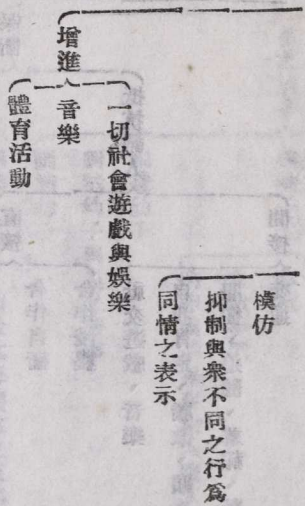 模仿
抑制與衆不同之行爲
同情之表示
一切社會遊戲與娛樂
增進 音樂
體育活動